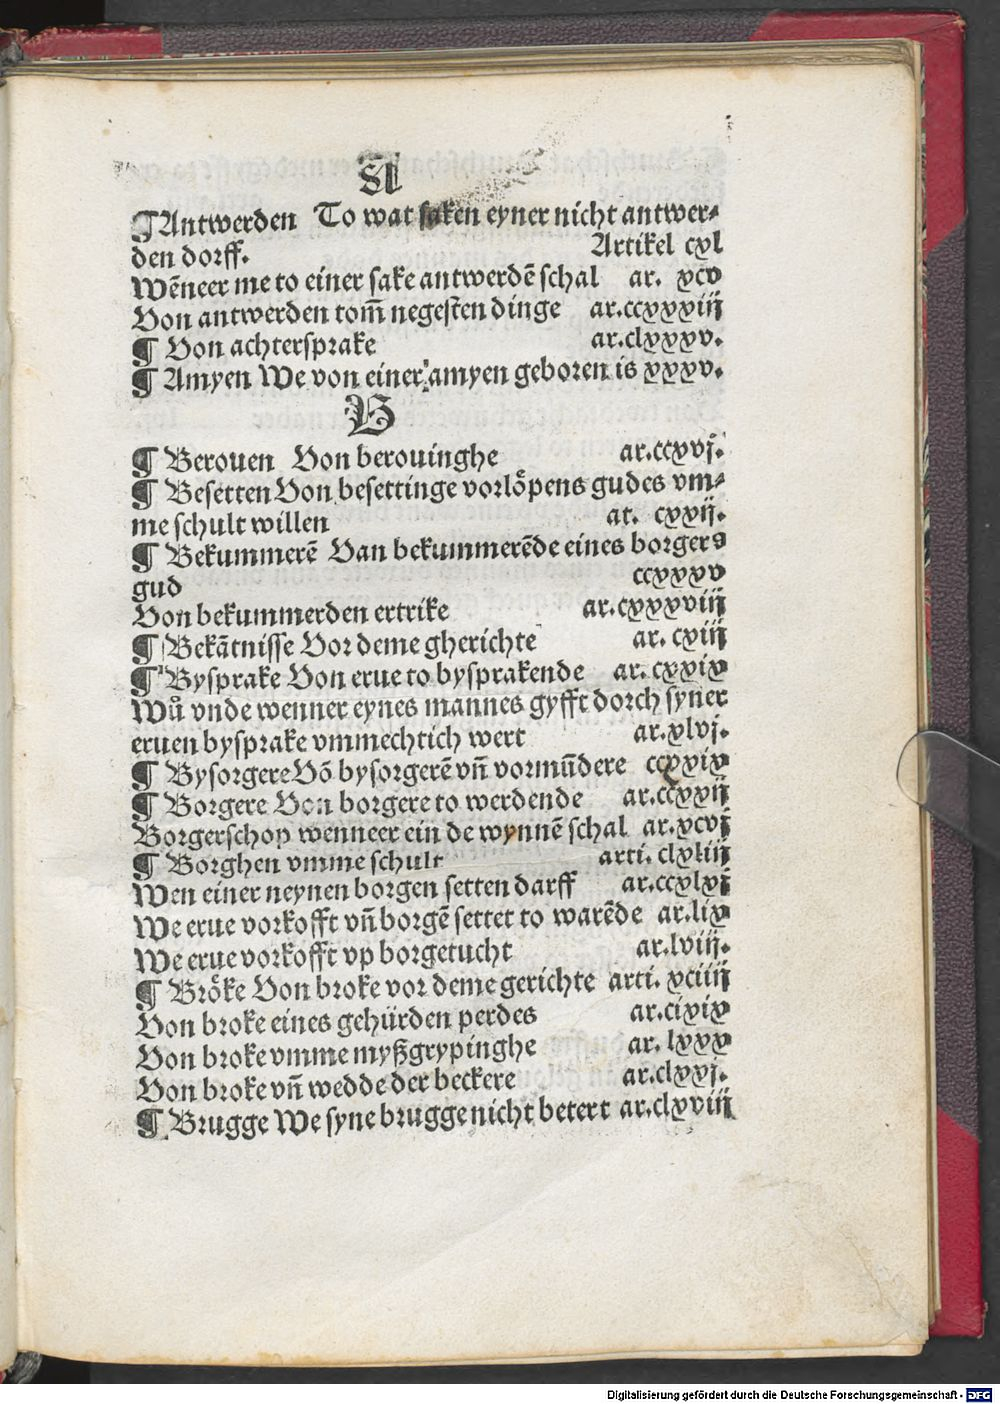 A
¶Antwerden To wat saken eyner nicht antwer⸗
den dorff. Artikel cxl
Wēneer me to einer sake antwerdē schal ar. xcv
Von antwerden tom̄ negesten dinge ar.ccxxxiiij
¶ Von achtersprake ar.clxxxv.
¶ Amyen We von einer amyen geboren is xxxv.
B
¶ Berouen Von berouinghe ar.ccxvj.
¶ Besetten Von besettinge vorlöpens gudes vm⸗
me schult willen ar. cxxij.
¶ Bekummerē Van bekummerēde eines borgers
gud ccxxxv
Von bekummerden ertrike ar.cxxxviiij
¶ Bekātnisse Vor deme gherichte ar. cxiij
¶ Bysprake Von erue to bysprakende ar. cxxix
Wů vnde wenner eynes mannes gyfft dorch syner
eruen bysprake vmmechtich wert ar.xlvj.
¶ Bysorgere Vō bysorgerē vn̄ vormūdere ccxxix
¶ Borgere Von borgere to werdende ar.ccxxij
Borgerschop wenneer ein de wynnē schal ar.xcvj
¶ Borghen vmme schult arti. clxliij
Wen einer neynen borgen setten darff ar.ccxlvj
We erue vorkofft vn̄ borgē settet to warēde ar.lix
We erue vorkofft vp borgetucht ar.lviij.
¶ Bröke Von broke vor deme gerichte arti. xciiij
Von broke eines gehürden perdes ar.cixix
Von broke vmme myßgrypinghe ar. lxxx
Von broke vn̄ wedde der beckere ar.clxxj.
¶ Brugge We syne brugge nicht betert ar.clxviij
Digitalisierung gefördert durch die Deutsche Forschungsgemeinschaft - DFG